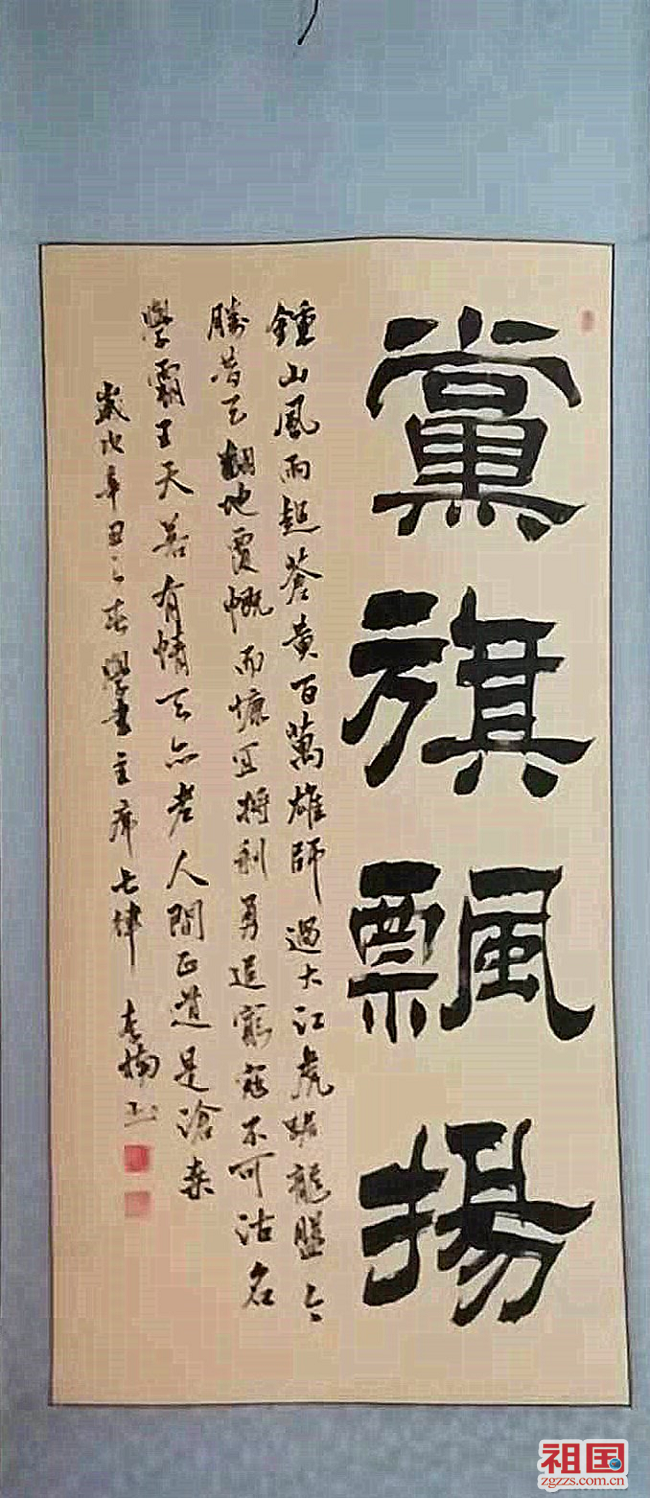 黨旗飄揚
鍾山風雨起蒼黃百萬雄師過大江虎踞龍盤今
勝昔天翻地覆慨而慷宜將剩勇追窮寇不可沽名
學霸王天若有情天亦老人間正道是滄桑
歲次辛丑之春學書主席七律
祖国
zgzzs.com.cn